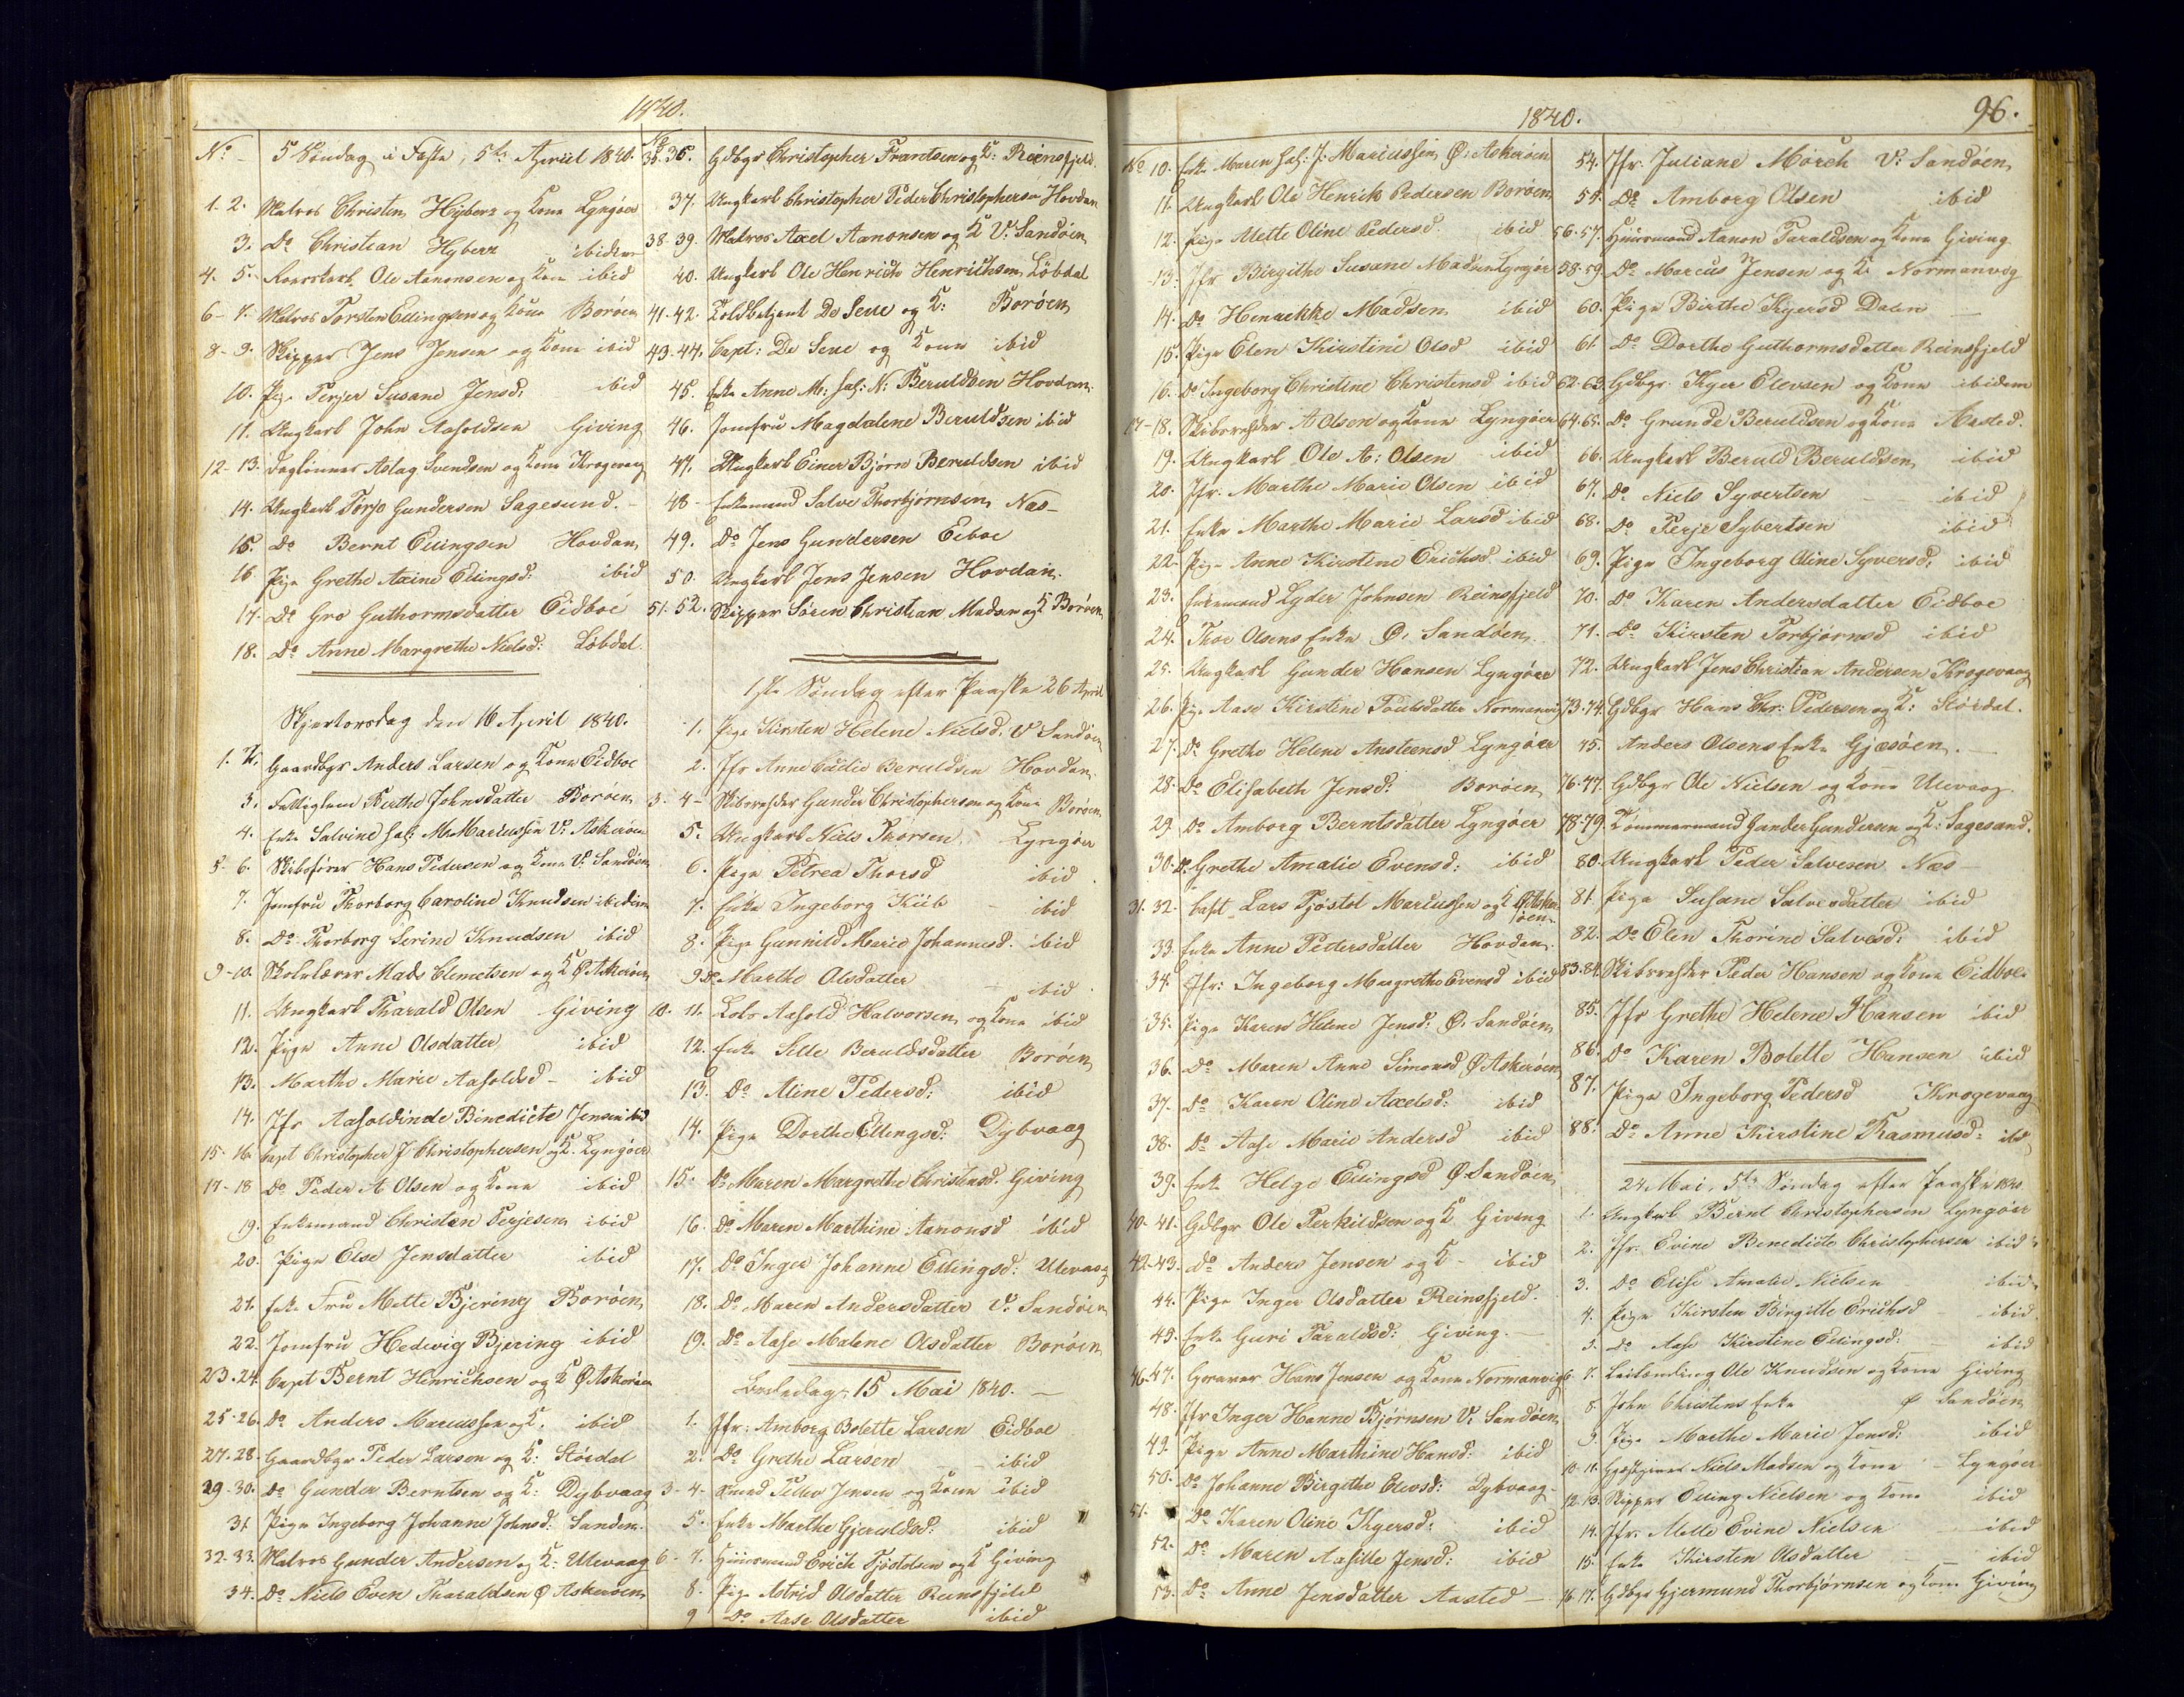 1840.
No 5 Søndag i Faste, 5te Apriil 1840.
1. 2. Matros Christen Hybert og Kone Lyngøer
3. Do Christian Hybert ibidem
4. 5. Ole Aanonsen og Kone ibid
6-7. Matros Torsten Ellingsen og Kone Borøen
8-9. Skipper Jens Jensen og Kone ibid
10. Pige Terjer Susane Jensd. ibid
11. Ungkarl John Aasoldsen Giving
12-13. Daglønner Aslag Svendsen og Kone Krogevaag
14. Ungkarl Terje Gundersen Sagesund.
15. Do Bernt Ellingsen Hovdan
16. Pige Grethe Axine Ellingsd: ibid
17. Do Gro Guthormsdatter Eidboe
18. Do Anne Margrethe Nielsd:Løbdal.
Skjertorsdag den 16 April 1840.
1. 2. Gaardbgr Anders Larsen og Kone Eidboe
3. Fattiglem Berthe Johnsdatter Borøen
4. Enke Salvine sal: M. Mariussen V: Askerøen
5-6. Skibsfører Hans Pedersen og Kone V. Sandøen
7. Jomfru Thorborg Caroline Knudsen ibidem
8. Do Thorborg Serine Knudsen ibid
9-10. Skolelærer Mads Clemetsen og K Ø Askerøen
11. Ungkarl Tharald Olsen Giving
12. Pige Anne Olsdatter ibid
13. Marthe Marie Aasoldsd - ibid
14. Jfr Aasoldinde Binedicte Jensen ibid
15-16. Capt Christopher J Christophersen og K. Lyngøer
17-18 Do Peder A Olsen og Kone ibid
19. Enkemand Christen Terjesen ibid
20. Pige Else Jensdatter ibid
21. Enke Fru Mette Bjering Borøen
22. Jomfru Hedevig Bjering ibid
23-24. Capt Bernt Henrichsen og K Ø Askerøen
25-26. Do Anders Mariussen og K. ibid
27-28. Gaardbgr Peder Larsen og K: Størdal
29-30. Do Gunder Berntsen og K: Dybvaag
31. Pige Ingeborg Johanne Johnsd: Sanden
32-33. Matros Gunder Andersen og K: Utevaag
34. Do Niels Even Tharaldsen Ø Askerøen
No
35. 36. Gdbgr Christopher Frantsen og K: Reinsfjeld.
37. Ungkarl Christopher Peder Christophersen Hovdan
38-39. Matros Axel Aanonsen og K V: Sandøen
40. Ungkarl Ole Henrich Henrichsen Løbdal
41-42. Toldbetjent De Seue og K: Borøen
43-44. Capt: De Seue og Kone ibid
45. Enke Anne M. sal: N: Beruldsen Hovdan.
46. Jomfru Magdalene Beruldsen ibid
47. Ungkarl Einer Bjørn Beruldsen ibid
48 - Enkemand Salve Thorbjørnsen Næs-
49. Do Jens Gundersen Eiboe
50. Ungkarl Jens Jensen Hovdan.
51. 52. Skipper Søren Christian Madsen og K Borøen
1ste Søndag efter Paaske 26 April
1. Pige Kirsten Helene Nielsd. V Sandøen
2. Jfr Anne Beruldsen Hovdan.
3. 4 - Skibsreder Gunder Christophersen og Kone Borøen
5. Ungkarl Niels Thorsen Lyngøer
6. Pige Petrea Thorsd ibid
7. Enke Ingeborg Kiib - ibid
8. Pige Gunnild Marie Johannesd. ibid
9. Do Marthe Olsdatter - ibid
10. 11. Lods Aasold Halvorsen og Kone ibid
12. Enke Sille Beruldsdatter Borøen
13. Do Aline Pedersd: ibid
14. Pige Dorthe Ellingsd: Dybvaag
15. Do Maren Margrethe Christensd. Giving
16. Do Maren Marthine Aanonsd ibid
17. Do Inger Johanne Ellingsd: Utevaag
18. Do Maren Andersdatter V. Sandøen
19. Do Aase Malene Olsdatter Borøen
Bededag - 15 Mai 1840. -
1. Jfr: Amborg Bolette Larsen Eidboe
2. Do Grethe Larsen - - ibid
3-4- Peder Jensen og Kone ibid
5. Enke Marthe Gjeruldsd: ibid
6-7. Huusmand Erich Tjøstolsen og K Giving
8. Pige Astrid Olsdatter Reinsfjeld
9 Do Aase Olsdatter ibid
1840.
96.
No 10. Enke Maren sal: J: Mariussen, Ø: Askerøen
11. Ungkarl Ole Henrik Pedersen Borøen
12. Pige Mette Oline Pedersd. ibid
13. Jfr Birgithe Susane Madsen Lyngøer
14. Do Henrekke Madsen ibid
15. Pige Elen Kirstine Olsd ibid
16. Do Ingeborg Christine Christensd ibid
17-18. Skibsreder A Olsen og Kone Lyngøer
19. Ungkarl Ole A: Olsen ibid
20. Jfr. Marthe Marie Olsen ibid
21. Enke Marthe Marie Larsd ibid
22. Pige Anne Kirstine Erichsd. ibid
23. Enkemand Lyder Johnsen Reinsfjeld
24. Thor Olsens Enke Ø. Sandøen
25. Ungkarl Gunder Hansen Lyngøer
26. Pige Aase Kirstine Poulsdatter Normanvig
27. Do Grethe Helene Ansteensd Lyngøer
28. Do Elisabeth Jensd: Borøen
29. Do Amborg Berntsdatter Lyngøer
30. Do Grethe Amalie Evensd: ibid
31. 32. Capt Lars Tjøstol Mariussen og K Ø Askerøen
33. Enke Anne Pedersdatter Hovdan.
34. Jfr: Ingeborg Margrethe Evensd ibid
35. Pige Karen Helene Jensd: Ø. Sandøen
36. Do Maren Anne Simonsd, Ø Askerøen
37. Do Karen Oline Axelsd: ibid
38. Do Aase Marie Andersd ibid
39. Enke Helge Ellingsd Ø. Sandøen
40-41. Gdbgr Ole Terkildsen og K Giving
42-43. Do Anders Jensen og K - ibid
44. Pige Inger Olsdatter Reinsfjeld.
45. Enke Guri Taraldsd: Giving. -
46. 47. Graver Hans Jensen og Kone Normanvig
48. Jfr Inger Hanne Bjørnsen V. Sandøen
49. Pige Anne Marthine Hansd: ibid
50. Do Johanne Birgithe Elevsd: Dybvaag-
51. Do Karen Oline Kgersd: ibid
52. Do Maren Aasille Jensd: ibid
53. Do Anne Jensdatter Aasted -
54. Jfr. Juliane Mørch V: Sandøen
55. Do Amborg Olsen ibid
56-57. Huusmand Aanon Taraldsen og Kone Giving.
58-59. Do Marcus Jensen og K. Normanvig
60. Pige Birthe Kgersd Dalen -
61. Do Dorthe Guthormsdatter Reinsfjeld
62-63. Gdbgr. Kger Elevsen og Kone ibidem
64. 65. Do Grunde Beruldsen og Kone Aasted.
66. Ungkarl Beruld Beruldsen ibid
67. Do Niels Syvertsen - - ibid
68. Do Terje Sybertsen ibid
69. Pige Ingeborg Oline Syversd. ibid
70. Do Karen Andersdatter Eidboe
71. Do Kirsten Torbjørnsd ibid
72. Ungkarl Jens Christian Andersen Krogevaag
73-74. Gdbgr Hans Chr: Pedersen og K: Størdal.
75. Anders Olsens Enke Gjæsøen. -
76-77. Gdbgr Ole Nielsen og Kone Utevaag.
78-79. Tømmermand Gunder Gundersen og K: Sagesund.
80. Ungkarl Peder Salvesen Næs -
81. Pige Susane Salvesdatter ibid
82. Do Elen Thorine Salvesd: ibid
83-84. Skibsreder Peder Hansen og Kone Eidboe
85. Jfr Grethe Helene Hansen ibid
86. Do Karen Bolette Hansen ibid
87. Pige Ingeborg Pedersd Krogevaag
88. Do Anne Kirstine Rasmusd: ibd
24 Mai, 5te Søndag efter Paaske 1840
1. Ungkarl Bernt Christophersen Lyngøer
2. Jfr. Evine Benedicte Christophersen ibid
3. Do Elise Amalie Nielsen ibid
4. Pige Kirsten Birgitte Erichsd - ibid
5. Do Aase Kirstine Ellingsd: - ibid
6. 7. Leilænding Ole Knudsen og Kone Giving
8. John Christens Enke Ø Sandøen
9. Pige Marthe Marie Jensd: ibid
10-11. Gjæstgiver Niels Madsen og Kone - Lyngøer
12-13. Skipper Elling Nielsen og Kone ibid
14. Jfr. Mette Evine Nielsen - ibid
15. Enke Kirsten Olsdatter - - ibid
16. 17. Gdbgr Gjermund Thorbjørnsen og Kone Giving